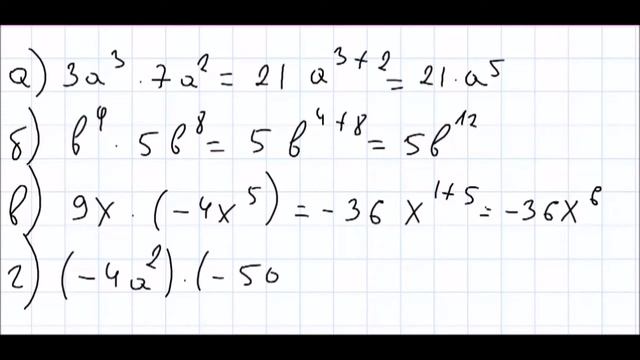 а) 3a³ · 7a² = 21 a³⁺² = 21 · a⁵
б) b⁴ · 5b⁸ = 5 b⁴⁺⁸ = 5b¹²
в) 9x · (−4x⁵) = −36 x¹⁺⁵ = −36x⁶
г) (−4a²) · (−50